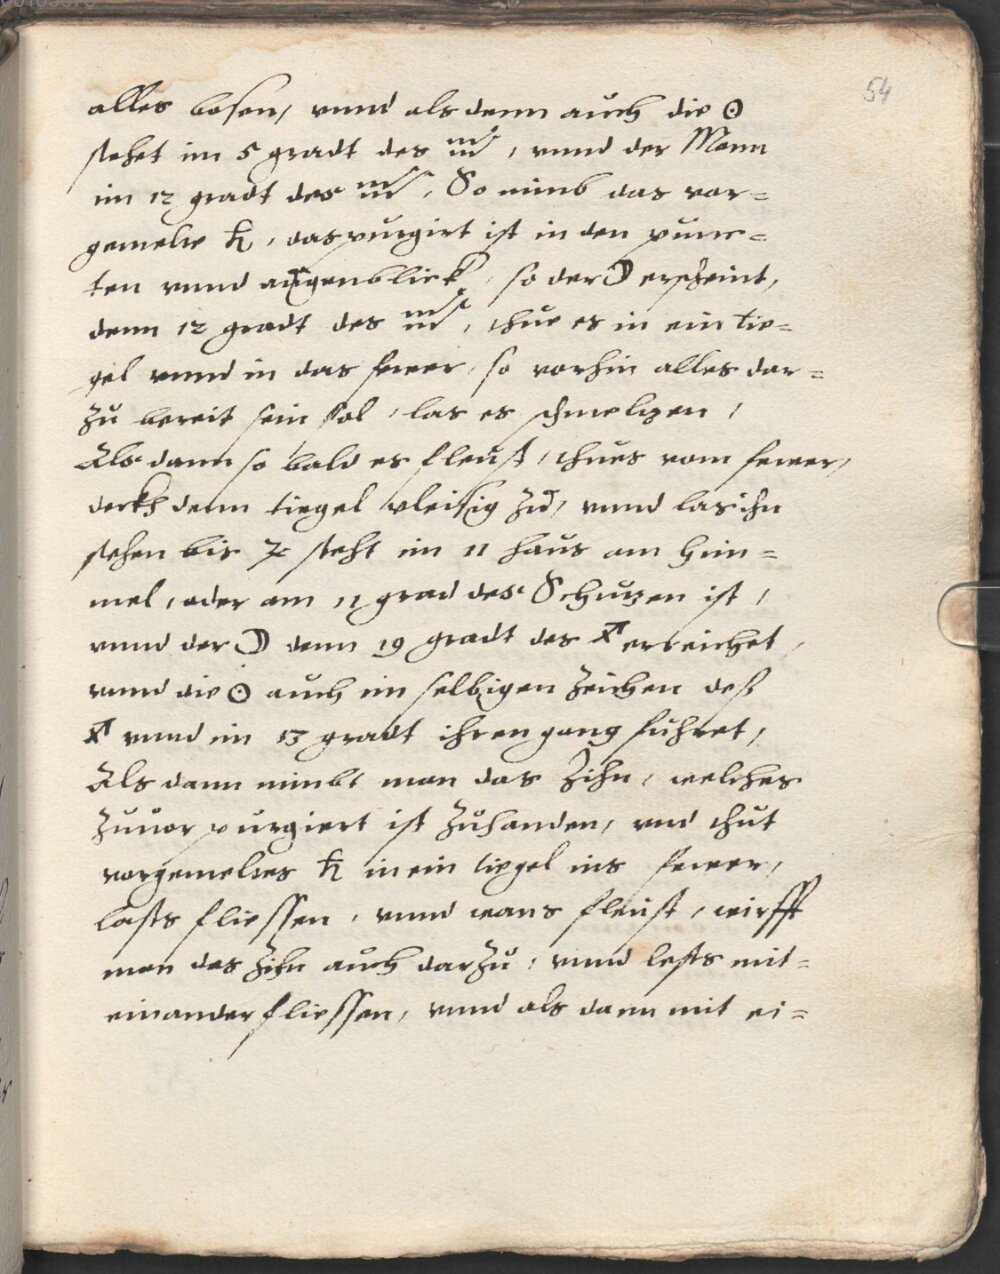 54
alles bosen, vnnd als denn auch die ☉
stehet im 5 gradt des ♍, vnnd der Monn
im 12 gradt des ♍, So nimb das vor=
gemelte ♄, das purgirt ist in den punc=
ten vnnd augenblick, so der ☽ erscheint,
denn 12 gradt des ♍, thue es in ein tie=
gel vnnd in das fewer, so vorhin alles dar=
zu bereit sein sol, las es schmeltzen,
Als dann so bald es fleust, thues vom fewer,
deckh denn tiegel vleisig zu, vnnd las ihn
stehen bis ♃ steht im 11 haus am him=
mel, oder am 11 grad des Schutzen ist,
vnnd der ☽ denn 19 gradt des ♐ erreichet,
vnnd die ☉ auch im selbigen zeichen deß
♐ vnnd im 13 gradt ihren gang fuhret,
Als dann nimbt man das Zihn, welches
zuuor purgiert ist zuhanden, vnd thut
vorgemeltes ♄ in ein tiegel ins fewer,
lasts fliessen, vnnd wans fleust, wirfft
man das Zihn auch darzu, vnnd lests mit=
einander fliessen, vnnd als dann mit ei=